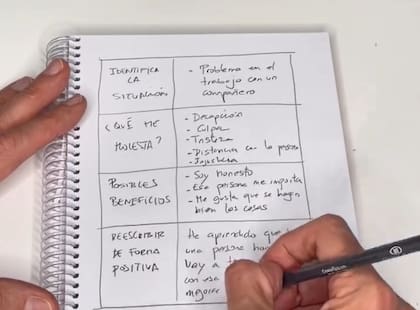 IDENTIFICA
LA
SITUACIÓN
- Problema en el
trabajo con un
compañero
¿QUÉ ME
MOLESTA?
- Decepción
- Culpa
- Tristeza
- Distancia con la persona
- Injusticia
POSIBLES
BENEFICIOS
- Soy honesto
- Esa persona me importa
- Me gusta que se hagan
bien las cosas
REESCRIBIR
DE FORMA
POSITIVA
He aprendido que
una persona
Voy a
con esa
mejorar